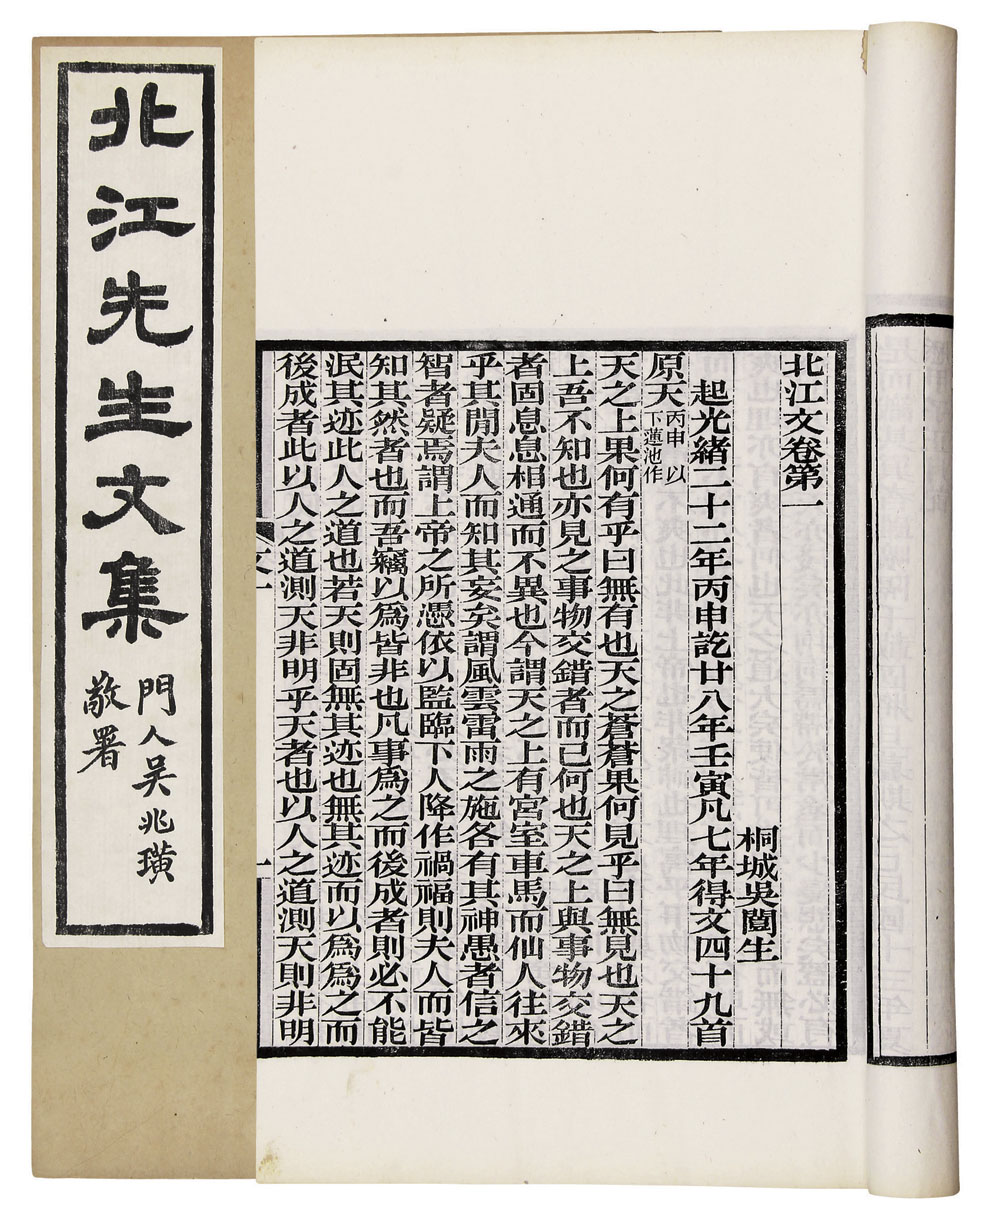 北江先生文集
門人吳兆璜
敬署
北江文卷第一
桐城吳闓生
起光緒二十二年丙申訖廿八年壬寅凡七年得文四十九首
原天丙申 以下蓮池作
天之上果何有乎曰無有也天之蒼蒼果何見乎曰無見也天之
上吾不知也亦見之事物交錯者而已何也天之上與事物交錯
者固息息相通而不異也今謂天之上有宮室車馬而仙人往來
乎其閒夫人而知其妄矣謂風雲雷雨之施各有其神愚者信之
智者疑焉謂上帝之所憑依以監臨下人降作禍福則夫人而皆
知其然者也而吾竊以為皆非也凡事為之而後成者則必不能
泯其迹此人之道也若天則固無其迹也無其迹而以為為之而
後成者此以人之道測天非明乎天者也以人之道測天則非明